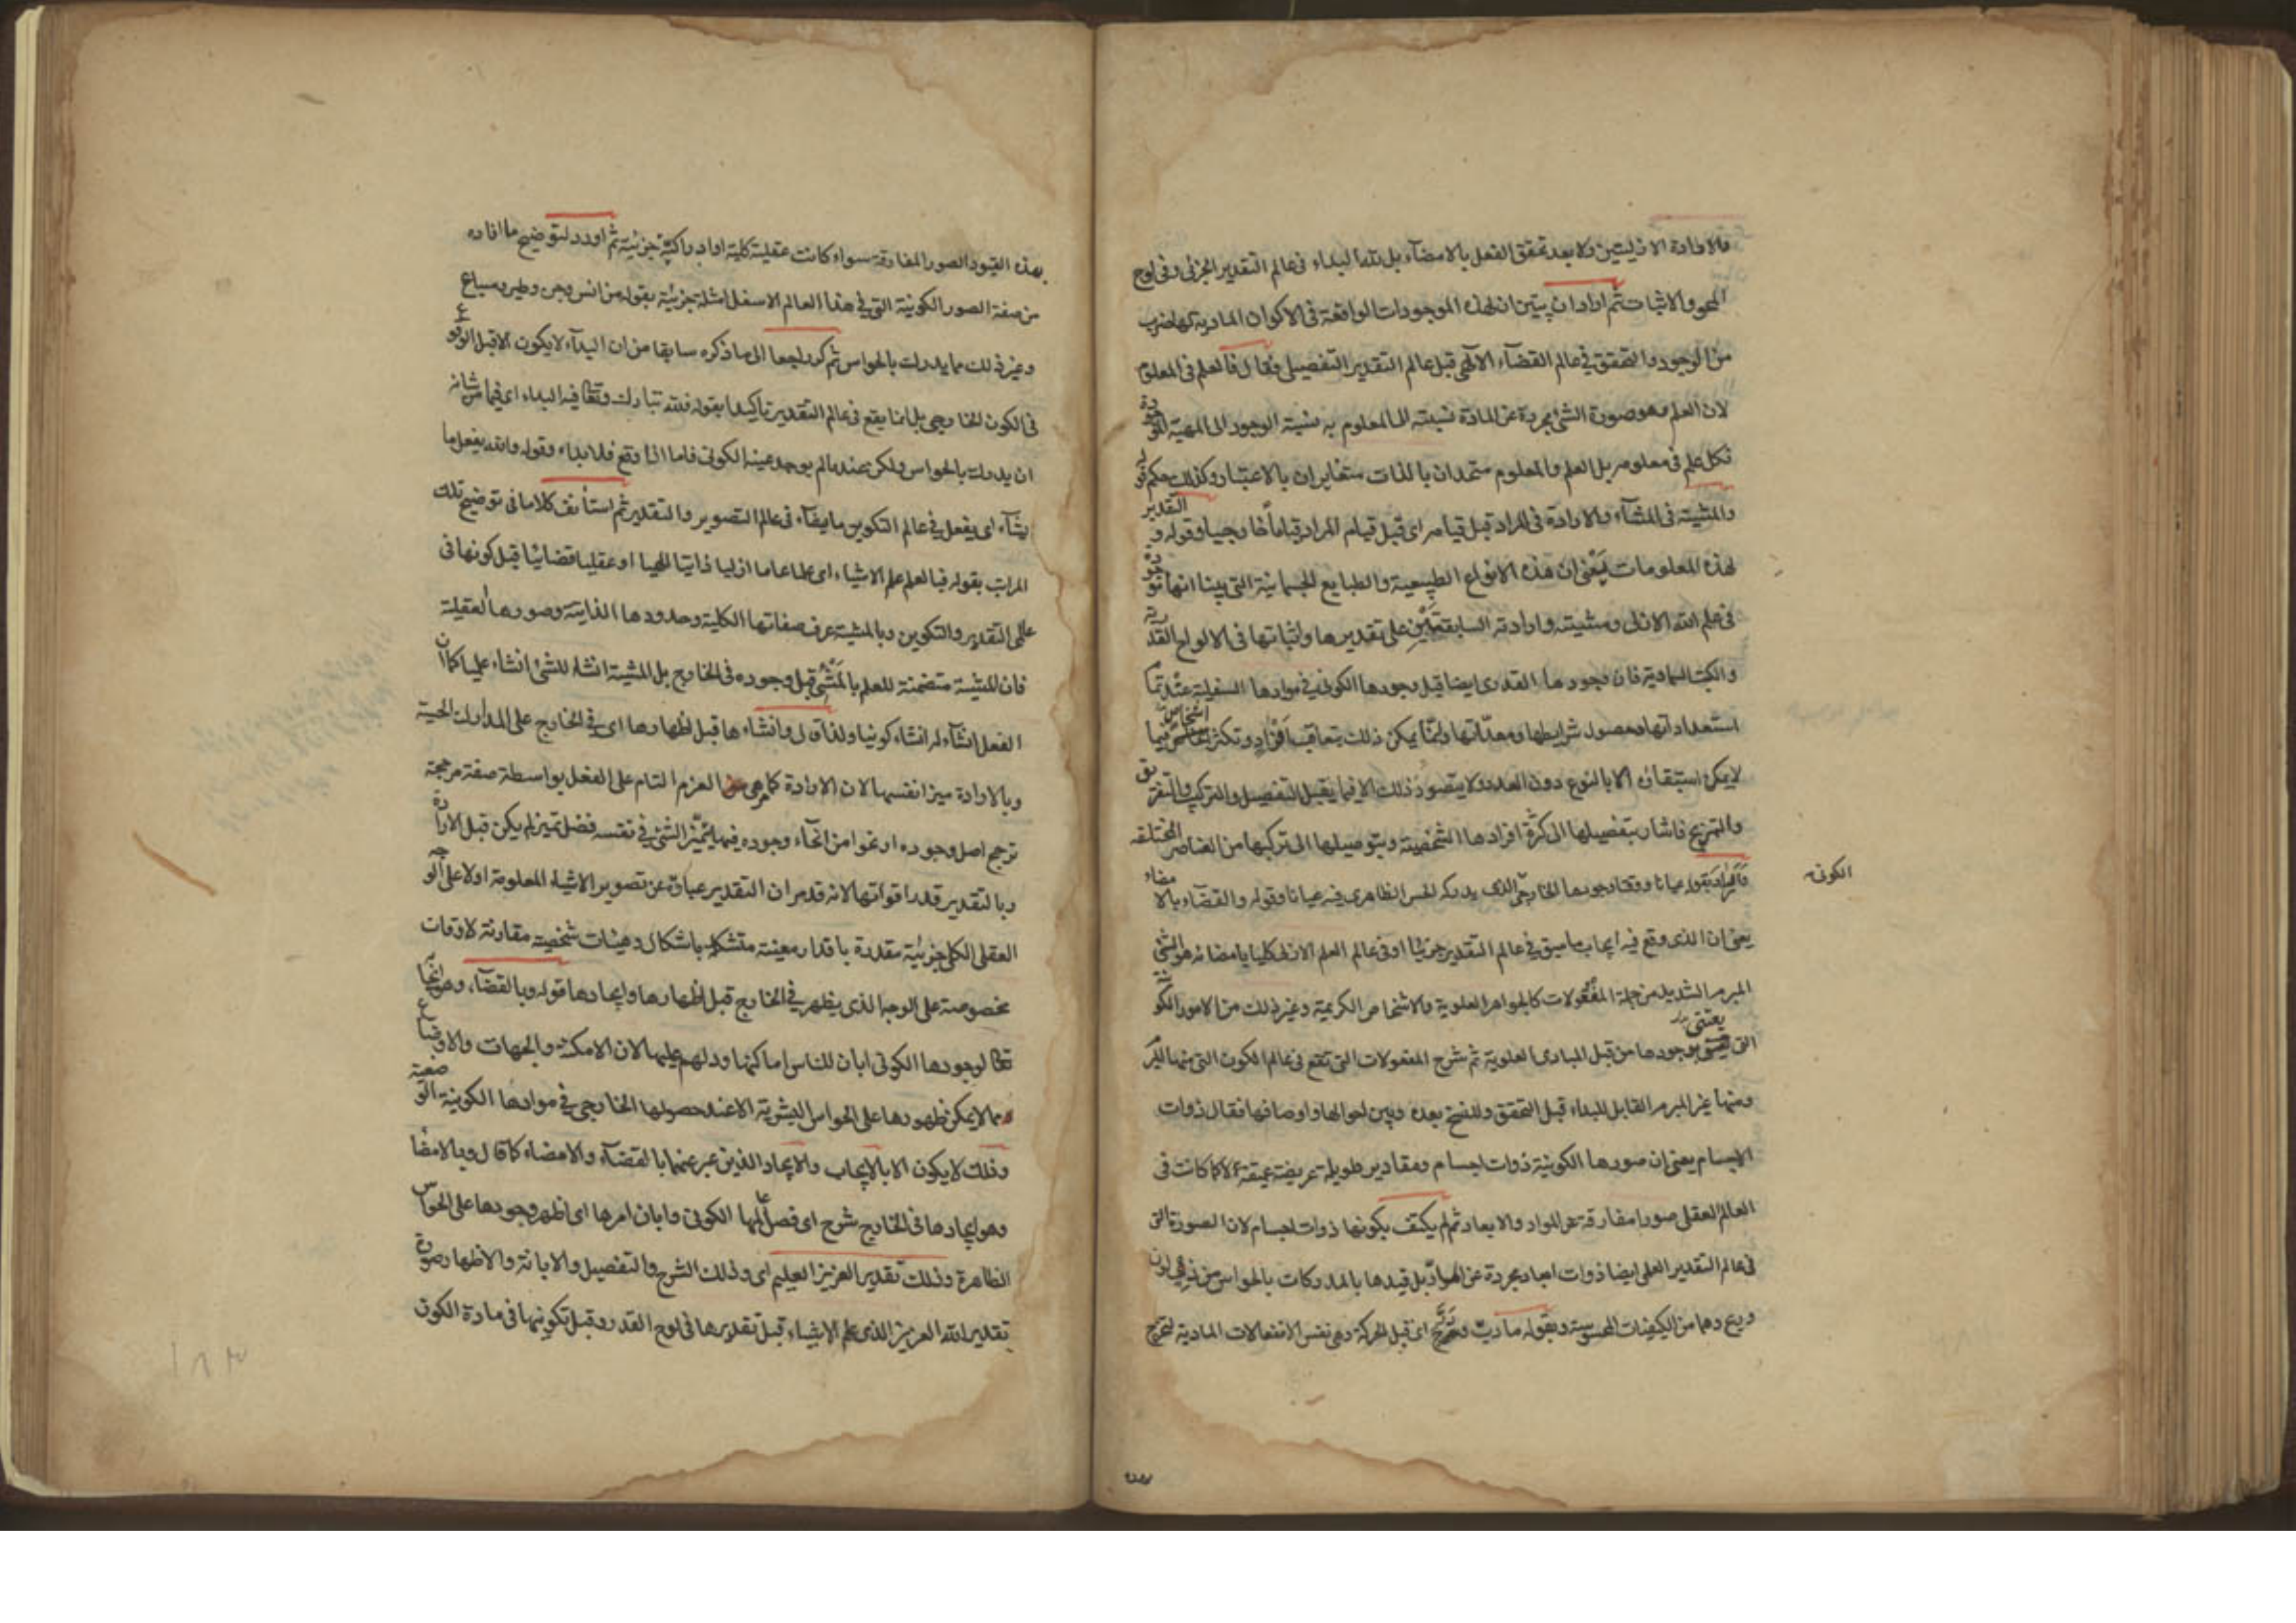 فالارادة الازليتين ولا بعد تحقق الفعل بالامضآء بل لله البداء فى عالم التقدير الجزئى وفى لوح
المحو والاثبات ثم اراد ان يبين ان لهذه الموجودات الواقعة فى الاكوان المادية لها ضرب
من الوجود والتحقق فى عالم القضآء الالهى قبل عالم التقدير التفصيلى فقال فالعلم فى المعلوم
لان العلم وهو صورة الشئ مجردة عن المادة نسبته الى المعلوم به نسبة الوجود الى المهية الموجودة
فكل علم فى معلومه بل العلم والمعلوم متحدان بالذات متغايران بالاعتبار وكذلك حكم قوله
والمشية فى المشآء والارادة فى المراد قبل قيامه اى قبل قيام المراد قياماً خارجيا وقوله والتقدير
لهذه المعلومات يعنى ان هذه الانواع الطبيعية والطبايع الجسمانية التى بينا انها موجودة
فى علم الله الازلى ومشيته وارادته السابقتين على تقديرها واثباتها فى الالواح القدرية
والكتب السماوية فان وجودها القدرى ايضا قبل وجودها الكونى فى موادها السفلية عند تمام
استعداداتها وحصول شرايطها ومعداتها وانما يمكن ذلك بتعاقب افراد وتكثر اشخاص فيما
لا يمكن استبقاؤه الا بالنوع دون العدد ولا يتصور ذلك الا فيما يقبل التفصيل والتركيب والتفريق
والتمزيج فاشار بتفصيلها الى كثرة افرادها الشخصية وبتوصيلها الى تركبها من العناصر المختلفة
واراد بقوله عيانا ووقتا وجودها الخارجى الذى يدركه الحس الظاهرى فيه عيانا وقوله والقضاء بالامضاء
الكونه
يعنى ان الذى وقع فيه ايجاب ما سبق فى عالم التقدير جزئيا او فى عالم العلم الازلى كليا بامضائه هو الشئ
المبرم الشديد من جملة المفعولات كالجواهر العلوية والاشخاص الكريمة وغير ذلك من الامور الكونية
التى يعتنى بوجودها من قبل المبادى العلوية ثم شرح المفعولات التى تقع فى عالم الكون التى منها المبرم
ومنها غير المبرم القابل للبداء قبل التحقق وللنسخ بعده وبين احوالها واوصافها فقال ذوات
الاجسام يعنى ان صورها الكونية ذوات اجسام ومقادير طويلة عريضة عميقة لا كما كانت فى
العالم العقلى صورا مفارقة عن المواد والابعاد ثم لم يكتف بكونها ذوات اجسام لان الصورة التى
فى عالم التقدير العلمى ايضا ذوات ابعاد مجردة عن المواد بل قيدها بالمدركات بالحواس من ذى لون
وريح وهما من الكيفيات المحسوسة وبقوله ما دب ودرج اى قبل الحركة وهى نفس الانفعالات المادية لتخرج
بهذه القيود الصور المفارقة سواء كانت عقلية كلية او ادراكية جزئية ثم اورد لتوضيح ما افاده
من صفة الصور الكونية التى فى هذا العالم الاسفل امثلة جزئية بقوله من انس وجن وطير وسباع
وغير ذلك مما يدرك بالحواس ثم كر راجعا الى ما ذكره سابقا من ان البدآء لا يكون الا قبل الوقوع
فى الكون الخارجى بل انما يقع فى عالم التقدير تاكيدا بقوله فلله تبارك وتعالى فيه البداء اى فيما من شانه
ان يدرك بالحواس ولكن عند ما لم يوجد عينه الكونى فاما اذا وقع فلا بداء وقوله والله يفعل ما
يشآء اى يفعل فى عالم التكوين ما يشآء فى عالم التصوير والتقدير ثم استأنف كلاما فى توضيح تلك
المراتب بقوله فبالعلم علم الاشياء اى علما عاما ازليا ذاتيا الهيا او عقليا قضائيا قبل كونها فى
عالمى التقدير والتكوين وبالمشية عرف صفاتها الكلية وحدودها الذاتية وصورها العقلية
فان المشية متضمنة للعلم بالمشئ قبل وجوده فى الخارج بل المشية انشاء للشئ انشاء علميا كما ان
الفعل انشآء له انشاء كونيا ولذا قال وانشاءها قبل اظهارها اى فى الخارج على المدارك الحسية
وبالارادة ميز انفسها لان الارادة كما هى العزم التام على الفعل بواسطة صفة مرجحة
ترجح اصل وجوده او نحوا من انحآء وجوده فبها يتميز الشئ فى نفسه فضل تميز لم يكن قبل الارادة
وبالتقدير قدر اقواتها لانه قد مر ان التقدير عبارة عن تصوير الاشياء المعلومة اولا على الوجه
العقلى الكلى جزئية مقدرة باقدار معينة متشكلة باشكال وهيئات شخصية مقارنة لاوقات
مخصوصة على الوجه الذى يظهر فى الخارج قبل اظهارها وايجادها قوله وبالقضآء وهو ايجابه
تعالى لوجودها الكونى ابان للناس اماكنها ودلهم عليها لان الامكنة والجهات والاوضاع
مما لا يمكن ظهورها على الحواس البشرية الا عند حصولها الخارجى فى موادها الكونية الوضعية
وذلك لا يكون الا بالايجاب والايجاد الذين عبر عنهما بالقضآء والامضاء كما قال وبالامضا
وهو ايجادها فى الخارج شرح اى فصل عللها الكونى وابان امرها اى اظهر وجودها على الحواس
الظاهرة وذلك تقدير العزيز العليم اى وذلك الشرح والتفصيل والابانة والاظهار صورة
تقدير الله العزيز الذى علم الاشياء قبل تقديرها فى لوح القدر وقبل تكوينها فى مادة الكون
١٨٣